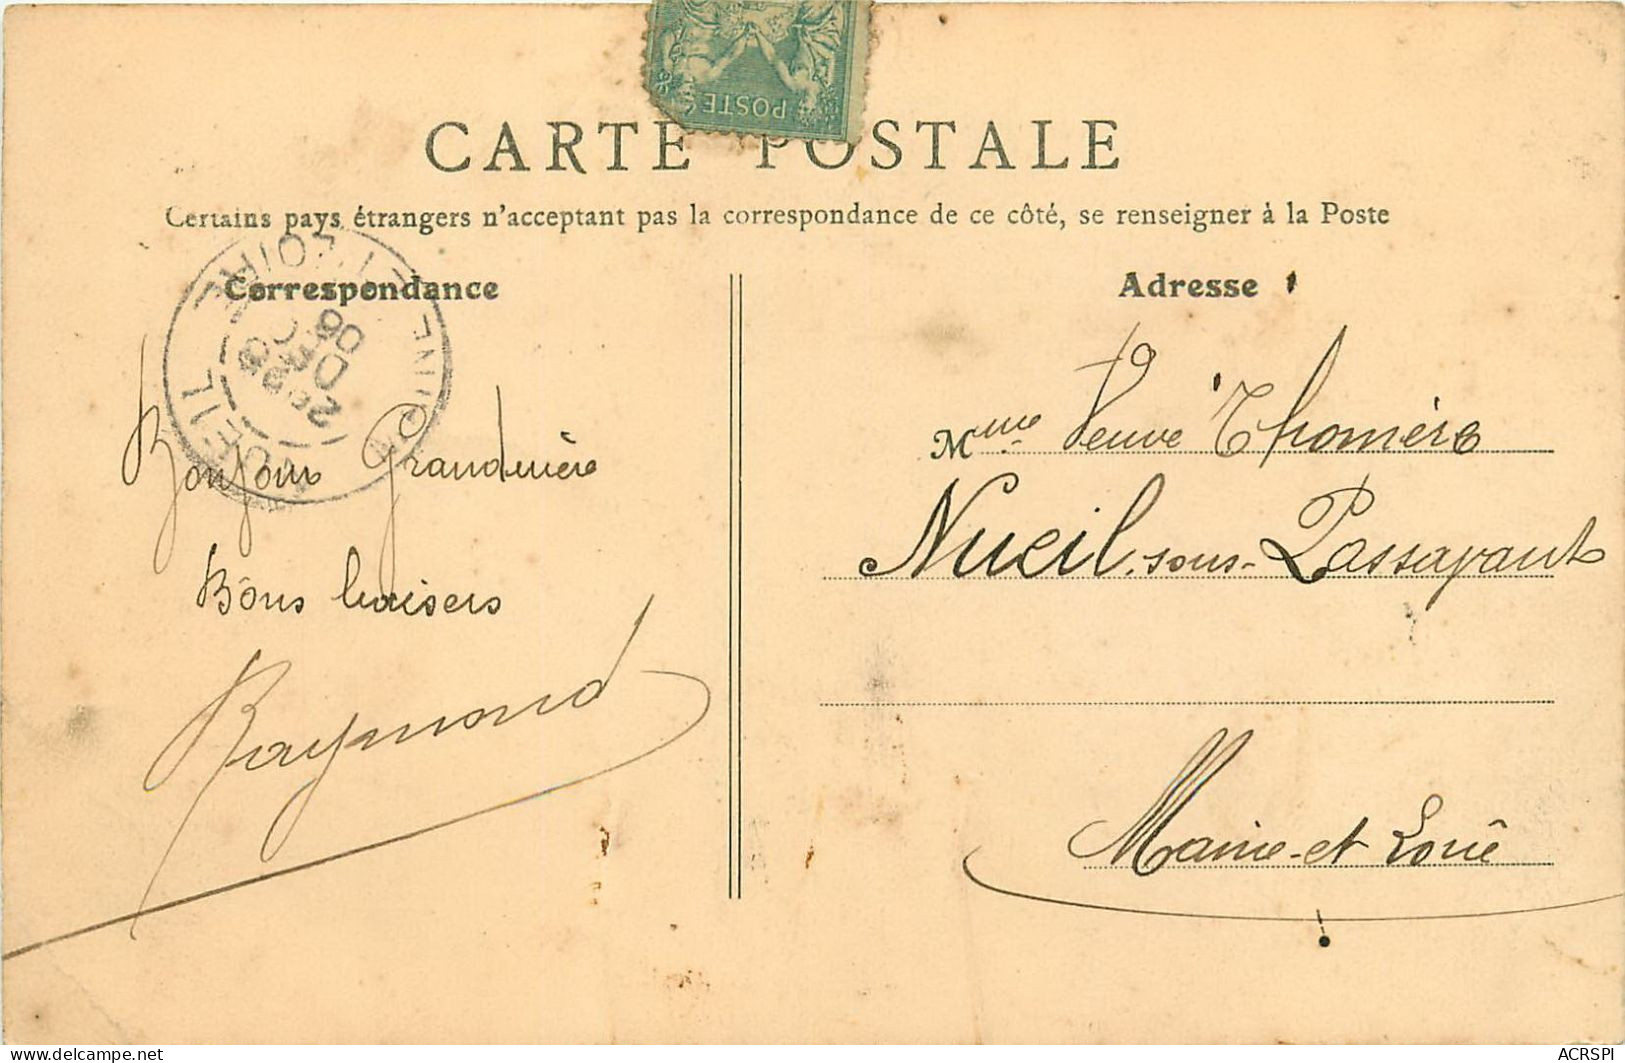 POSTES
CARTE POSTALE
Certains pays étrangers n'acceptent pas la correspondance de ce côté, se renseigner à la Poste
Correspondance
Bonjour Grandmère
Bons baisers
Raymond
NUEIL
MAINE-ET-LOIRE
DÉC
06
Adresse
Mme Veuve Thomère
Nueil-sous-Passavant
Maine-et-Loire
ACRSPI